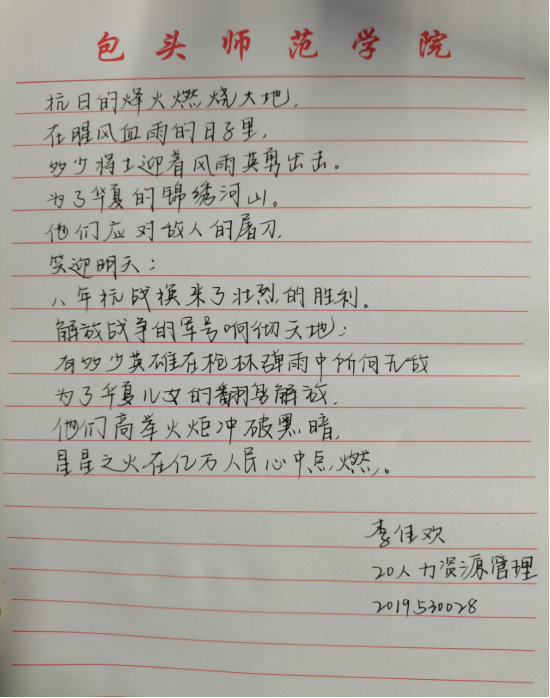 包头师范学院
抗日的烽火燃烧大地,
在腥风血雨的日子里,
多少将士迎着风雨英勇出击。
为了华夏的锦绣河山。
他们应对敌人的屠刀,
笑迎明天;
八年抗战换来了壮烈的胜利。
解放战争的军号响彻天地;
有多少英雄在枪林弹雨中所向无敌
为了华夏儿女的翻身解放,
他们高举火炬冲破黑暗,
星星之火在亿万人民心中点燃。
李佳欢
20人力资源管理
2019530028